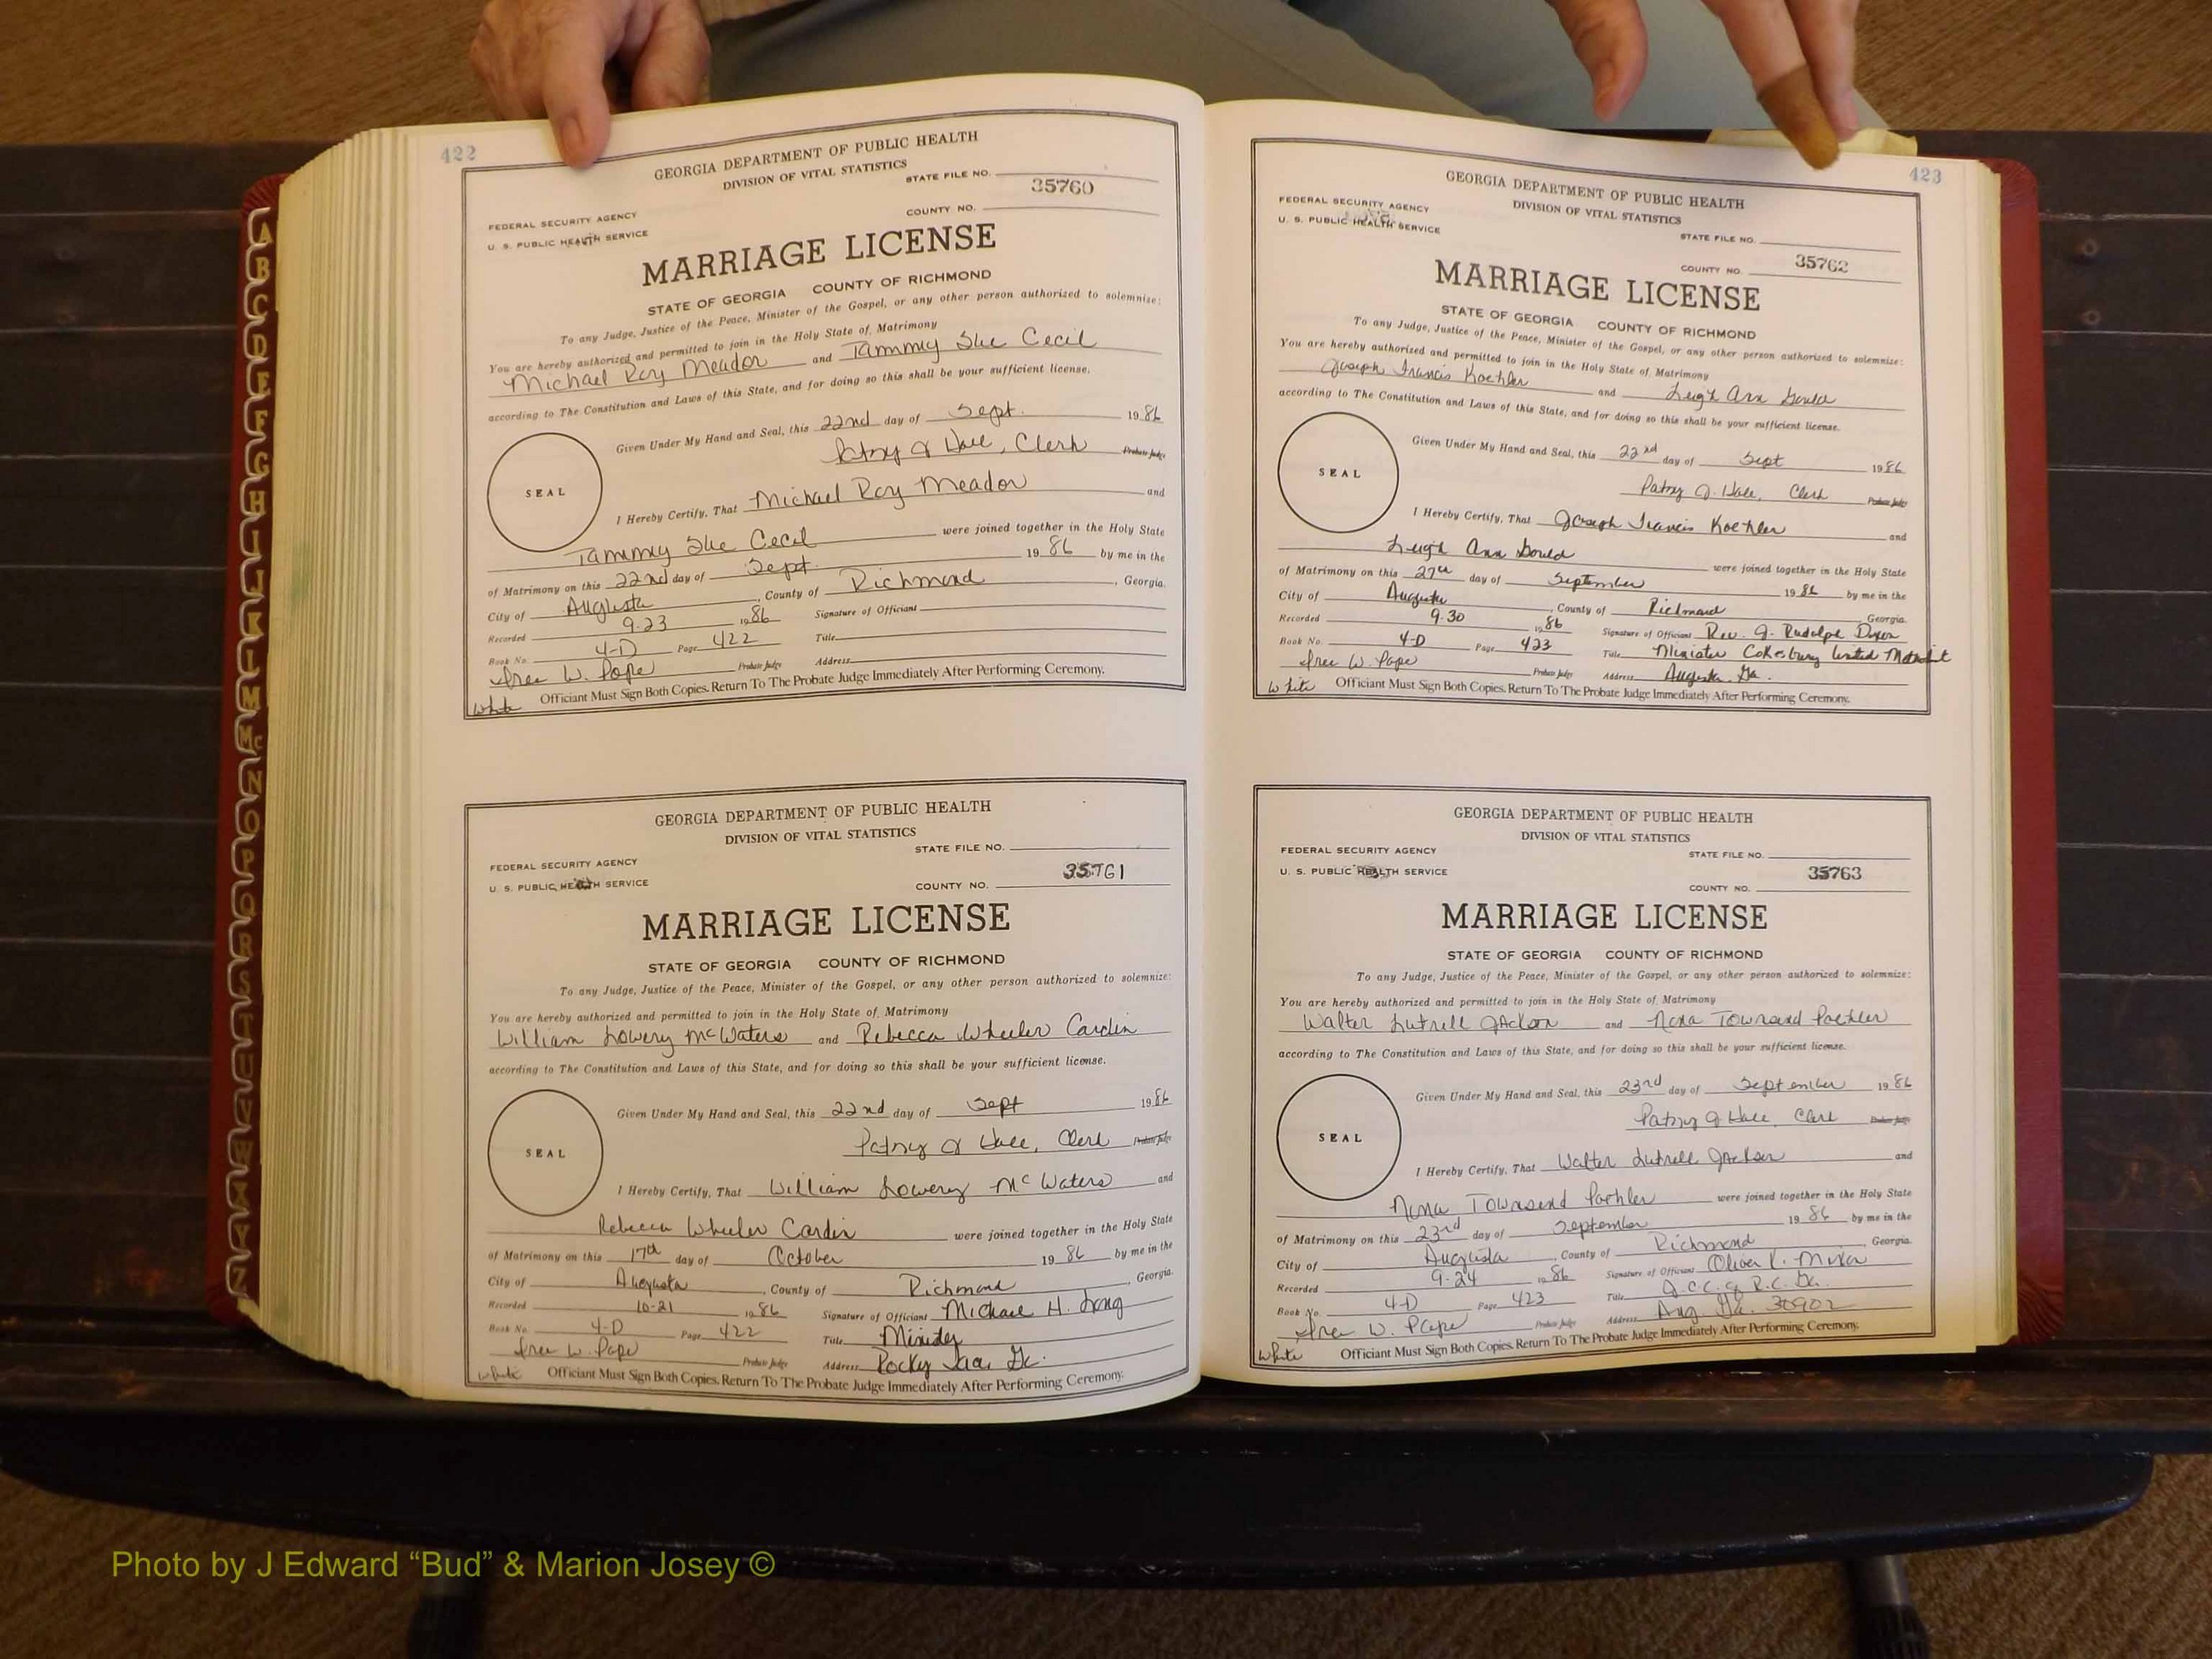 422
GEORGIA DEPARTMENT OF PUBLIC HEALTH
DIVISION OF VITAL STATISTICS
STATE FILE NO.
35760
FEDERAL SECURITY AGENCY
U. S. PUBLIC HEALTH SERVICE
COUNTY NO.
MARRIAGE LICENSE
STATE OF GEORGIA COUNTY OF RICHMOND
To any Judge, Justice of the Peace, Minister of the Gospel, or any other person authorized to solemnize:
You are hereby authorized and permitted to join in the Holy State of Matrimony
Michael Roy Meador and Tammy Sue Cecil
according to The Constitution and Laws of this State, and for doing so this shall be your sufficient license.
Given Under My Hand and Seal, this 22nd day of Sept. 1986
Patsy J Hall, Clerk Probate Judge
SEAL
I Hereby Certify, That Michael Roy Meador and
Tammy Sue Cecil were joined together in the Holy State
of Matrimony on this 22nd day of Sept. 1986 by me in the
City of Augusta, County of Richmond, Georgia.
Recorded 9-23 1986 Signature of Officiant
Book No. 4-D Page 422 Title
W. Pope Probate Judge Address
White Officiant Must Sign Both Copies. Return To The Probate Judge Immediately After Performing Ceremony.
GEORGIA DEPARTMENT OF PUBLIC HEALTH
DIVISION OF VITAL STATISTICS
STATE FILE NO.
FEDERAL SECURITY AGENCY
35761
U. S. PUBLIC HEALTH SERVICE
COUNTY NO.
MARRIAGE LICENSE
STATE OF GEORGIA COUNTY OF RICHMOND
To any Judge, Justice of the Peace, Minister of the Gospel, or any other person authorized to solemnize:
You are hereby authorized and permitted to join in the Holy State of Matrimony
William Lowery McWaters and Rebecca Wheeler Cardin
according to The Constitution and Laws of this State, and for doing so this shall be your sufficient license.
Given Under My Hand and Seal, this 22nd day of Sept 1986
Patsy J Hall, Clerk Probate Judge
SEAL
I Hereby Certify, That William Lowery McWaters and
Rebecca Wheeler Cardin were joined together in the Holy State
of Matrimony on this 17th day of October 1986 by me in the
City of Augusta, County of Richmond, Georgia.
Recorded 10-21 1986 Signature of Officiant Michael H. Long
Book No. 4-D Page 422 Title Minister
W. Pope Probate Judge Address Rocky Ga.
White Officiant Must Sign Both Copies. Return To The Probate Judge Immediately After Performing Ceremony.
423
GEORGIA DEPARTMENT OF PUBLIC HEALTH
DIVISION OF VITAL STATISTICS
FEDERAL SECURITY AGENCY
U. S. PUBLIC HEALTH SERVICE
STATE FILE NO.
35762
COUNTY NO.
MARRIAGE LICENSE
STATE OF GEORGIA COUNTY OF RICHMOND
To any Judge, Justice of the Peace, Minister of the Gospel, or any other person authorized to solemnize:
You are hereby authorized and permitted to join in the Holy State of Matrimony
Joseph Francis Koehler and Leigh Ann Gould
according to The Constitution and Laws of this State, and for doing so this shall be your sufficient license.
Given Under My Hand and Seal, this 22nd day of Sept 1986
Patsy J. Hall, Clerk Probate Judge
SEAL
I Hereby Certify, That Joseph Francis Koehler and
Leigh Ann Gould were joined together in the Holy State
of Matrimony on this 27th day of September 1986 by me in the
City of Augusta, County of Richmond Georgia.
Recorded 9-30 1986 Signature of Officiant Rev. J. Rudolph Dixon
Book No. 4-D Page 423 Title Minister Cokesbury United Methodist
W. Pope Probate Judge Address Augusta, Ga.
White Officiant Must Sign Both Copies. Return To The Probate Judge Immediately After Performing Ceremony.
GEORGIA DEPARTMENT OF PUBLIC HEALTH
DIVISION OF VITAL STATISTICS
FEDERAL SECURITY AGENCY
STATE FILE NO.
U. S. PUBLIC HEALTH SERVICE
35763
COUNTY NO.
MARRIAGE LICENSE
STATE OF GEORGIA COUNTY OF RICHMOND
To any Judge, Justice of the Peace, Minister of the Gospel, or any other person authorized to solemnize:
You are hereby authorized and permitted to join in the Holy State of Matrimony
Walter Lutrell Jackson and Nena Townsend Poehler
according to The Constitution and Laws of this State, and for doing so this shall be your sufficient license.
Given Under My Hand and Seal, this 23rd day of September 1986
Patsy J Hall, Clerk Probate Judge
SEAL
I Hereby Certify, That Walter Lutrell Jackson and
Nena Townsend Poehler were joined together in the Holy State
of Matrimony on this 23rd day of September 1986 by me in the
City of Augusta, County of Richmond, Georgia.
Recorded 9-24 1986 Signature of Officiant Oliver K. Mixon
Book No. 4-D Page 423 Title J.C.C. of R.C. Ga.
W. Pope Probate Judge Address Aug. Ga. 30902
White Officiant Must Sign Both Copies. Return To The Probate Judge Immediately After Performing Ceremony.
A
B
C
D
E
F
G
H
I
J
K
L
M
Mc
N
O
P
Q
R
S
T
U
V
W
X
Y
Z
Photo by J Edward “Bud” & Marion Josey ©